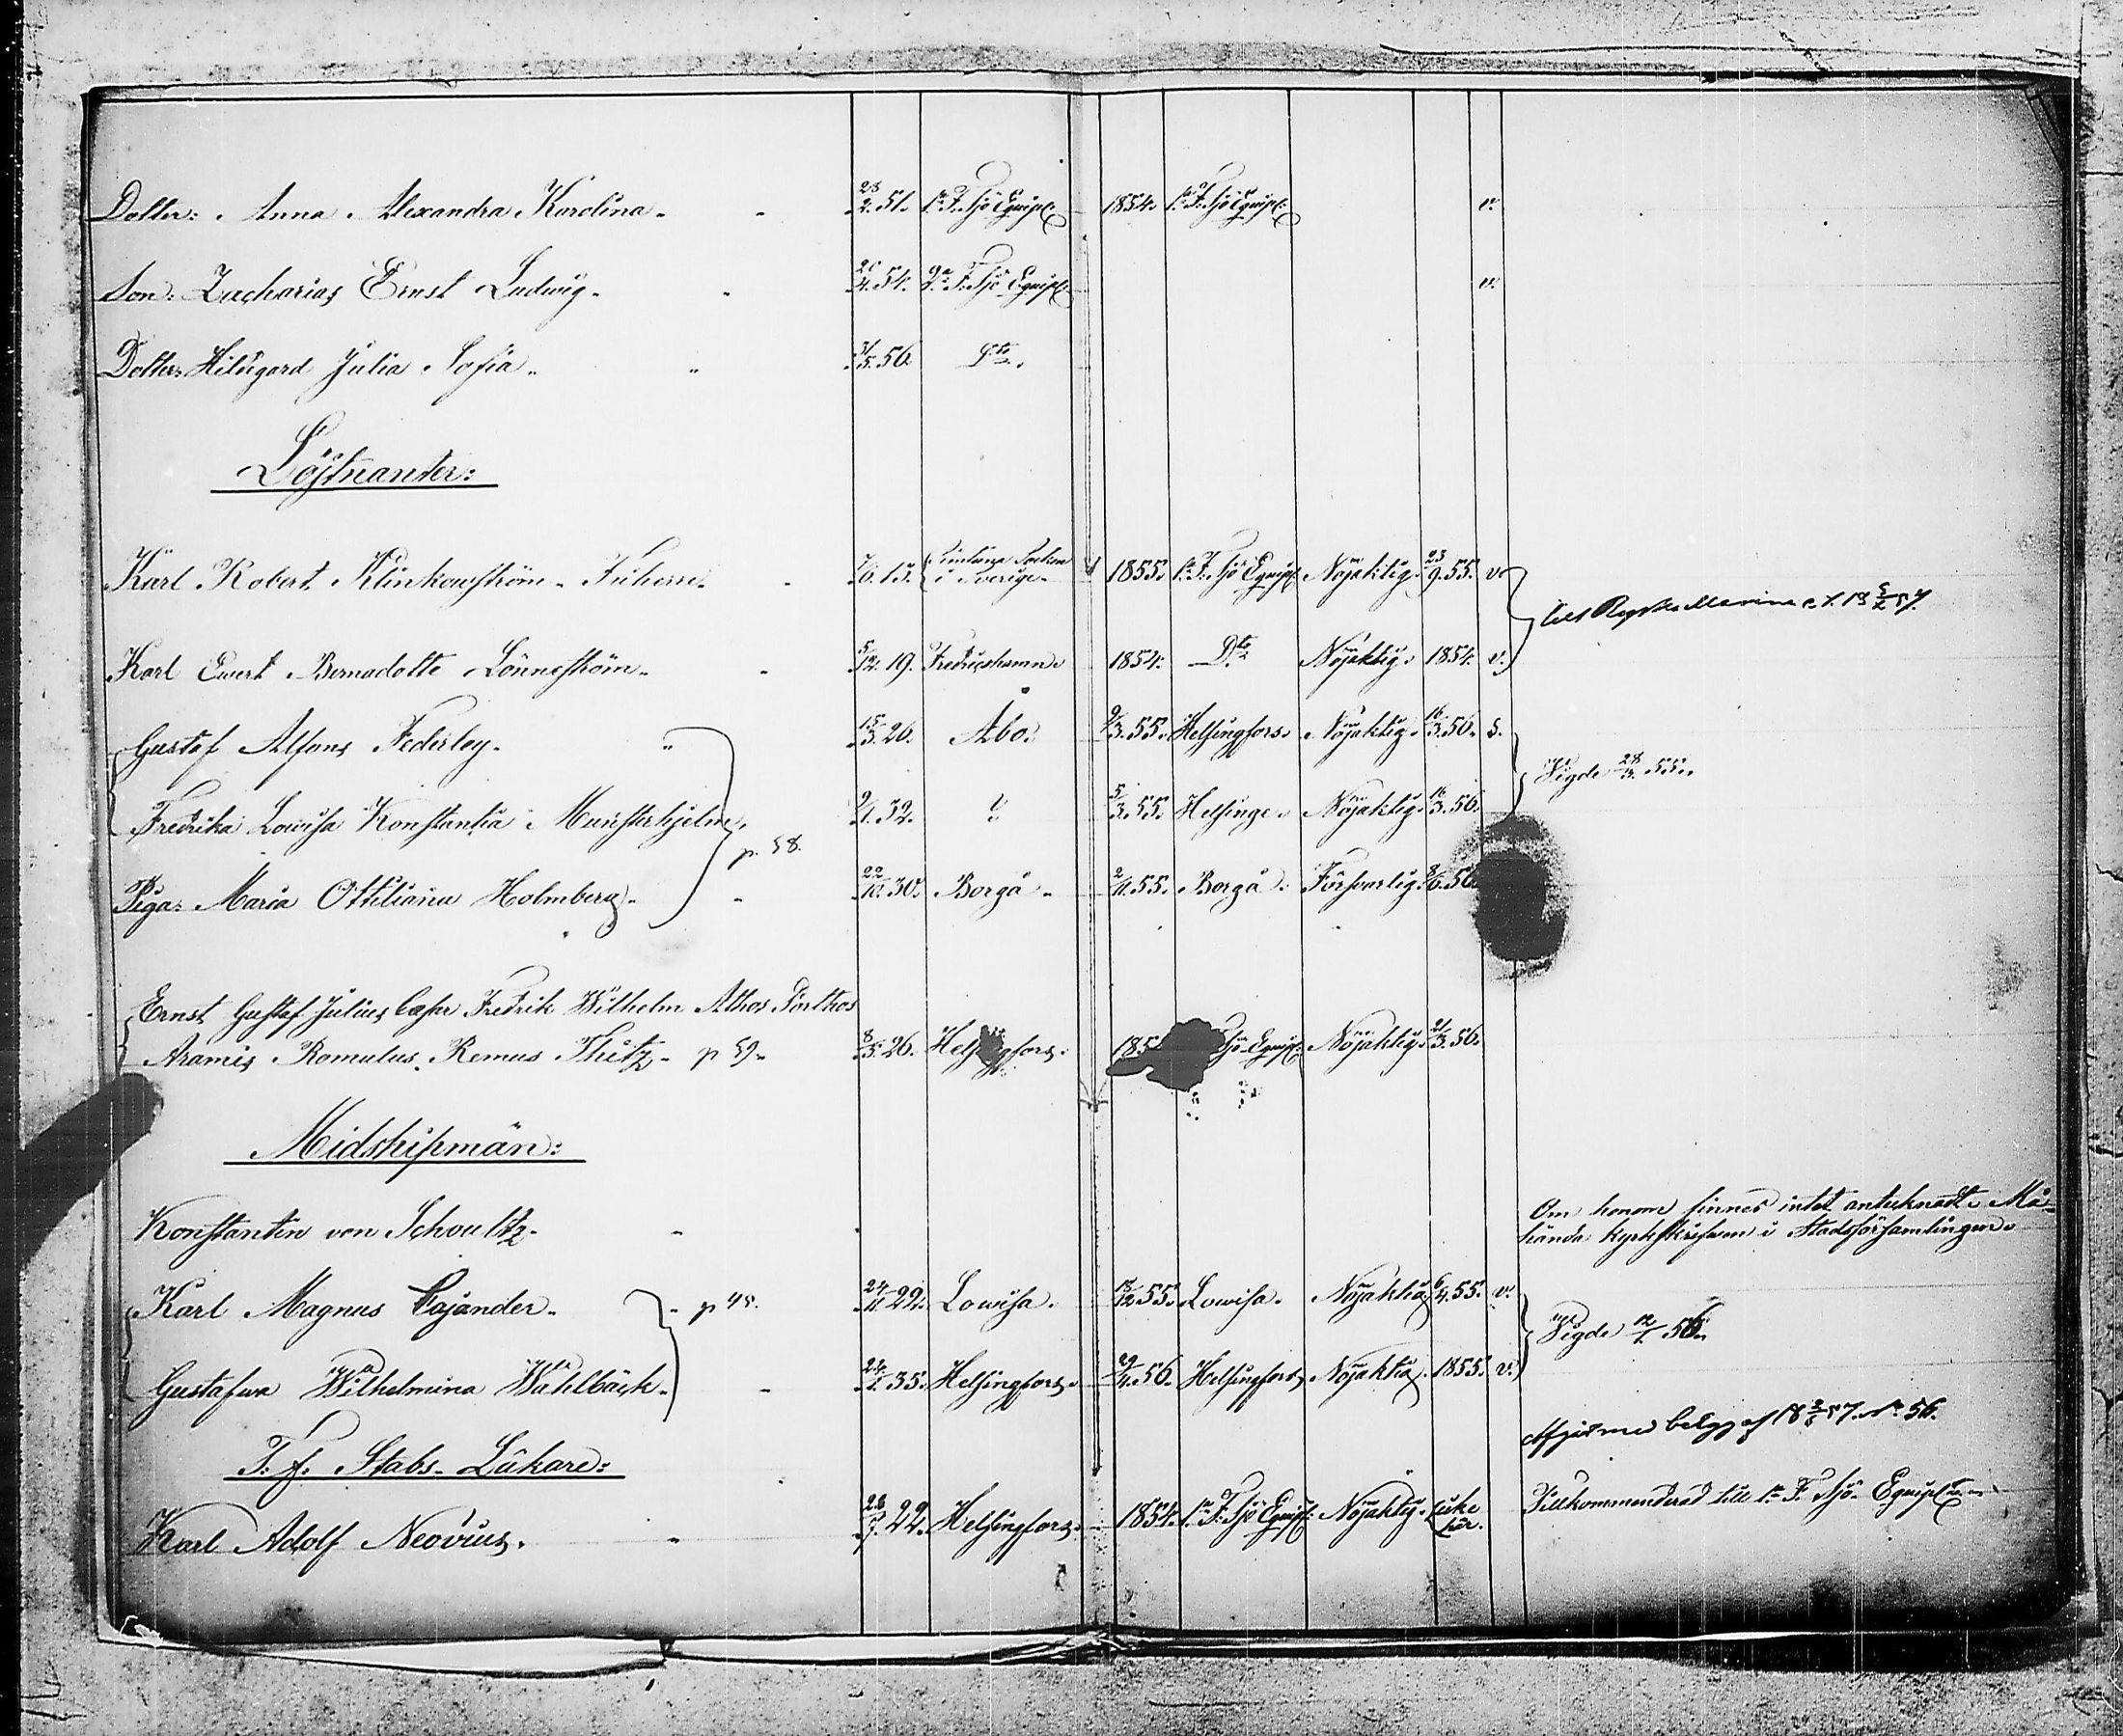 Dotter: Anna Alexandra Karolina. 23/2. 51. 1a F. Sjö Equip: 1854. 1a F. Sjö Equip: v.
Son: Zacharias Ernst Ludwig. 54. 2a F. Sjö Equip: v.
Dotter: Hildegard Julia Sofia. 31/5. 56. Dto.
Löjtnanter:
Karl Robert Klinkowström. Friherre. 7/6. 15. Socken i Sverige. 1855. 1a F. Sjö Equip: Nöjaktig. 23/9. 55. v.
till Ryska Marinen
Karl Evert Bernadotte Lönneström. 5/12. 19. Fredricshamn. 1854. Dto Nöjaktig. 1854. v.
Gustaf Alfons Federley. 15/3. 26. Åbo. 9/3. 55. Helsingfors. Nöjaktig. 16/3. 56. s.
Vigde 55.
Fredrika Lovisa Konstantia Munsterhjelm. 9/1. 32. ? 5/3. 55. Helsinge. Nöjaktig. 16/3. 56.
p. 58.
Piga: Maria Ottiliana Holmberg. 22/10. 30. Borgå. 2/11. 55. Borgå. Försvarlig. 8/6. 56
Ernst Gustaf Julius Cæsar Fredrik Wilhelm Athos Porthos
Aramis Romulus Remus Thitz. p 59. 8/5. 26. Helsingfors. 185 Sjö Equip: Nöjaktig. 21/3. 56.
Midshipmän:
Om honom finnes intet antecknadt. Må-
Konstantin von Schoultz.
hända kyrkskrifven i Stadsförsamlingen.
Karl Magnus Cajander. p 45. 24/11. 29. Lowisa. 18/12. 55. Lowisa. Nöjaktig 6/4. 55. v.
Vigde 12/1. 56.
Gustafva Wilhelmina Wahlbäck. 35. Helsingfors. 29/4. 56. Helsingfors Nöjaktig. 1855. v.
T. f. Stabs-Läkare:
Tillkommenderad till 1a F. Sjö Equip:
Karl Adolf Neovius. 22. Helsingfors. 1854. 1a F. Sjö Equip: Nöjaktig. icke här.